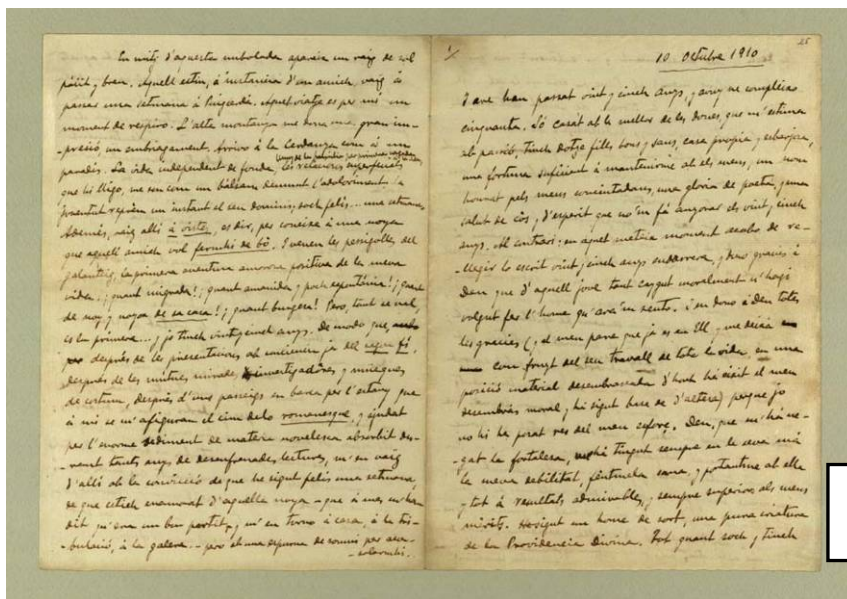 En mitj d'aquesta embolada apareix un raig de sol
pàlit y breu. Aquell estiu, á instancia d'un amich, vaig á
passar una setmana á Puigcerdá. Aquet viatge es per mi un
moment de respiro. L'alta montanya me dona una gran im-
-presió, un embriagament. Arrivo á la Cerdanya com á un
paradís. La vida independent de fonda, les relacions superficials
que hi lligo, me son com un bálsam damunt l'adoloriment. La
joventut reprèn un instant el seu domini; soch felís... una setmana
Ademés, vaig allí á vistes, es dir, per coneixe á una noya
que aquell amich vol fermhi de bò. I venen les pessigolles del
galanteig, la primera aventura amorosa positiva de la meva
vida. ¡quant migrada! ¡quant amanida y poch espontánia! ¡quant
de noy y noya de sa casa! ¡quant burgesa! Pero, tant se val,
es la primera..., y jo tinch vint y cinch anys. De modo que,
després de les presentacions ab conciencia ja del
després de les mútues mirades investigadores y mitges
de costum, després d'uns passeigs en barca per l'estany que
á mi se m'afiguran el cim dels romanesque, y ajudat
per l'enorme sediment de materia novelesca absorbit du-
-rant tants anys de desenfrenades lectures, m'en vaig
d'allí ab la convicció de que he sigut felís una setmana,
de que estich enamorat d'aquella noya - que á mes m'han
dit qu'era un bon partit -, y m'en torno á casa, á la tri-
-bulació, á la galera... pero ab una espurna de somni per acon-
-solarmhi.
1/
25
10 Octubre 1910
I are han passat vint y cinch anys, y avuy ne compleixo
cinquanta. Só casat ab la mellor de les dones, que m'estima
ab passió, tinch dotze fills bons y sans, casa propia y
una fortuna suficient á mantenirme ab els meus, un nom
honrat pels meus conciutadans, una gloria de poeta, y una
salut de còs y d'esperit que no'm fá anyorar els vint y cinch
anys. Al contrari: en aquet mateix moment acabo de re-
-llegir lo escrit vint y cinch anys endarrera, y dono gracies á
Deu que d'aquell jove tant caygut moralment n'hagi
volgut fer l'home qu'avuy'm sento. I'n dono á Deu totes
les gracies (y al meu pare que ja es en Ell, y me deixá
com fruyt del seu travall de tota la vida, en una
posició material desembrassada d'hont há eixit el meu
desembrás moral y há sigut base de d'altera) perque jo
no hi he posat res del meu esforç. Deu, que m'há ne-
-gat la fortalesa, há tingut sempre en la seva má
la meva debilitat, fentmela sana, y portantme ab ella
y tot á resultats admirables, y sempre superiors als meus
mèrits. He sigut un home de sort, una pura criatura
de la Providencia Divina. Tot quant soch y tinch